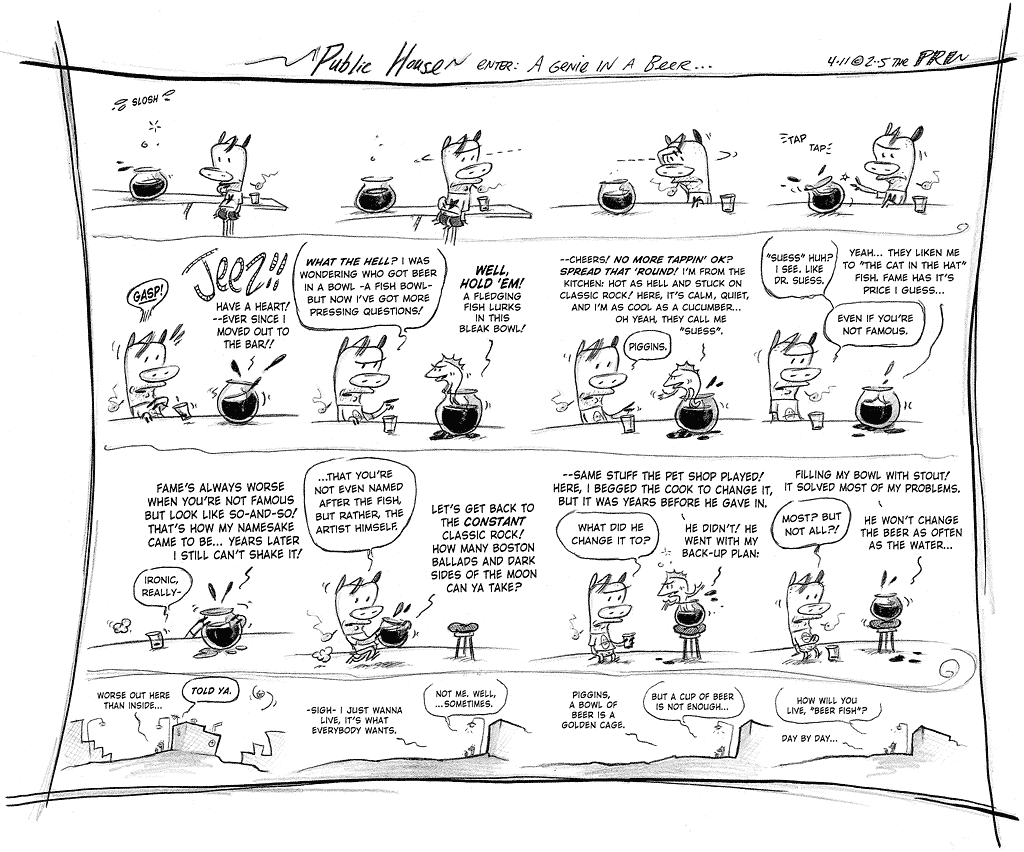 Public House enter: A Genie in a Beer...
4-11 © 2-5 THE PREN
SLOSH
TAP
TAP
GASP!
JEEZ!!
HAVE A HEART!
--EVER SINCE I
MOVED OUT TO
THE BAR!!
WHAT THE HELL? I WAS
WONDERING WHO GOT BEER
IN A BOWL -A FISH BOWL-
BUT NOW I'VE GOT MORE
PRESSING QUESTIONS!
WELL,
HOLD 'EM!
A FLEDGING
FISH LURKS
IN THIS
BLEAK BOWL!
--CHEERS! NO MORE TAPPIN' OK?
SPREAD THAT 'ROUND! I'M FROM THE
KITCHEN: HOT AS HELL AND STUCK ON
CLASSIC ROCK! HERE, IT'S CALM, QUIET,
AND I'M AS COOL AS A CUCUMBER...
OH YEAH, THEY CALL ME
"SUESS".
PIGGINS.
"SUESS" HUH?
I SEE. LIKE
DR. SUESS.
YEAH... THEY LIKEN ME
TO "THE CAT IN THE HAT"
FISH. FAME HAS IT'S
PRICE I GUESS...
EVEN IF YOU'RE
NOT FAMOUS.
FAME'S ALWAYS WORSE
WHEN YOU'RE NOT FAMOUS
BUT LOOK LIKE SO-AND-SO!
THAT'S HOW MY NAMESAKE
CAME TO BE... YEARS LATER
I STILL CAN'T SHAKE IT!
IRONIC,
REALLY-
...THAT YOU'RE
NOT EVEN NAMED
AFTER THE FISH,
BUT RATHER, THE
ARTIST HIMSELF.
LET'S GET BACK TO
THE CONSTANT
CLASSIC ROCK!
HOW MANY BOSTON
BALLADS AND DARK
SIDES OF THE MOON
CAN YA TAKE?
--SAME STUFF THE PET SHOP PLAYED!
HERE, I BEGGED THE COOK TO CHANGE IT,
BUT IT WAS YEARS BEFORE HE GAVE IN.
WHAT DID HE
CHANGE IT TO?
HE DIDN'T! HE
WENT WITH MY
BACK-UP PLAN:
FILLING MY BOWL WITH STOUT!
IT SOLVED MOST OF MY PROBLEMS.
MOST? BUT
NOT ALL?!
HE WON'T CHANGE
THE BEER AS OFTEN
AS THE WATER...
WORSE OUT HERE
THAN INSIDE...
TOLD YA.
-SIGH- I JUST WANNA
LIVE, IT'S WHAT
EVERYBODY WANTS.
NOT ME. WELL,
...SOMETIMES.
PIGGINS,
A BOWL OF
BEER IS A
GOLDEN CAGE.
BUT A CUP OF BEER
IS NOT ENOUGH...
HOW WILL YOU
LIVE, "BEER FISH"?
DAY BY DAY...